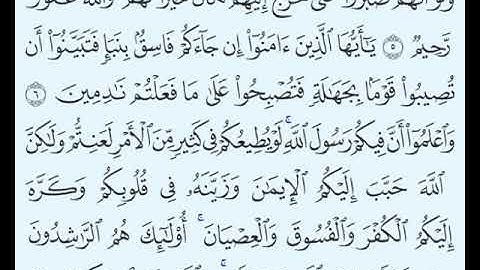 وَلَوْ أَنَّهُمْ صَبَرُوا۟ حَتَّىٰ تَخْرُجَ إِلَيْهِمْ لَكَانَ خَيْرًا لَّهُمْ وَٱللَّهُ غَفُورٌ
رَّحِيمٌ ٥ يَـٰٓأَيُّهَا ٱلَّذِينَ ءَامَنُوٓا۟ إِن جَآءَكُمْ فَاسِقٌۢ بِنَبَإٍ فَتَبَيَّنُوٓا۟ أَن
تُصِيبُوا۟ قَوْمًۢا بِجَهَـٰلَةٍ فَتُصْبِحُوا۟ عَلَىٰ مَا فَعَلْتُمْ نَـٰدِمِينَ ٦
وَٱعْلَمُوٓا۟ أَنَّ فِيكُمْ رَسُولَ ٱللَّهِ ۚ لَوْ يُطِيعُكُمْ فِى كَثِيرٍ مِّنَ ٱلْأَمْرِ لَعَنِتُّمْ وَلَـٰكِنَّ
ٱللَّهَ حَبَّبَ إِلَيْكُمُ ٱلْإِيمَـٰنَ وَزَيَّنَهُۥ فِى قُلُوبِكُمْ وَكَرَّهَ
إِلَيْكُمُ ٱلْكُفْرَ وَٱلْفُسُوقَ وَٱلْعِصْيَانَ ۚ أُو۟لَـٰٓئِكَ هُمُ ٱلرَّٰشِدُونَ